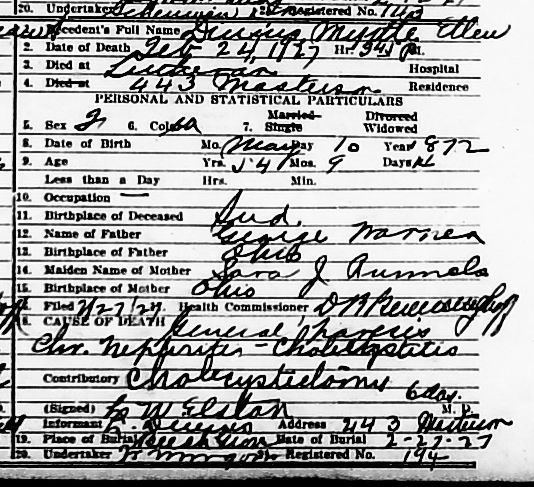 20. Undertaker Registered No. 143
Decedent's Full Name Myrtle Ellen
2. Date of Death Feb 24, 1927 Hr. P.M.
3. Died at Lutheran Hospital
4. Died at 443 Masterson Residence
PERSONAL AND STATISTICAL PARTICULARS
Married Divorced
5. Sex F 6. Color W 7. Single Widowed
8. Date of Birth Mo. May Day 10 Year 1872
9. Age Yrs. 54 Mos. 9 Days 14
Less than a Day Hrs. Min.
10. Occupation —
11. Birthplace of Deceased Ind.
12. Name of Father George Warner
13. Birthplace of Father Ohio
14. Maiden Name of Mother Sara J Runnels
15. Birthplace of Mother Ohio
Filed 2/27/27 Health Commissioner
CAUSE OF DEATH General Paresis
Chr. Nephritis - Cholecystitis
Contributory Cholecystectomy 6 das.
(Signed) Elston M. D.
Informant Address 443 Masterson
19. Place of Burial Date of Burial 2-27-27
20. Undertaker Registered No. 194